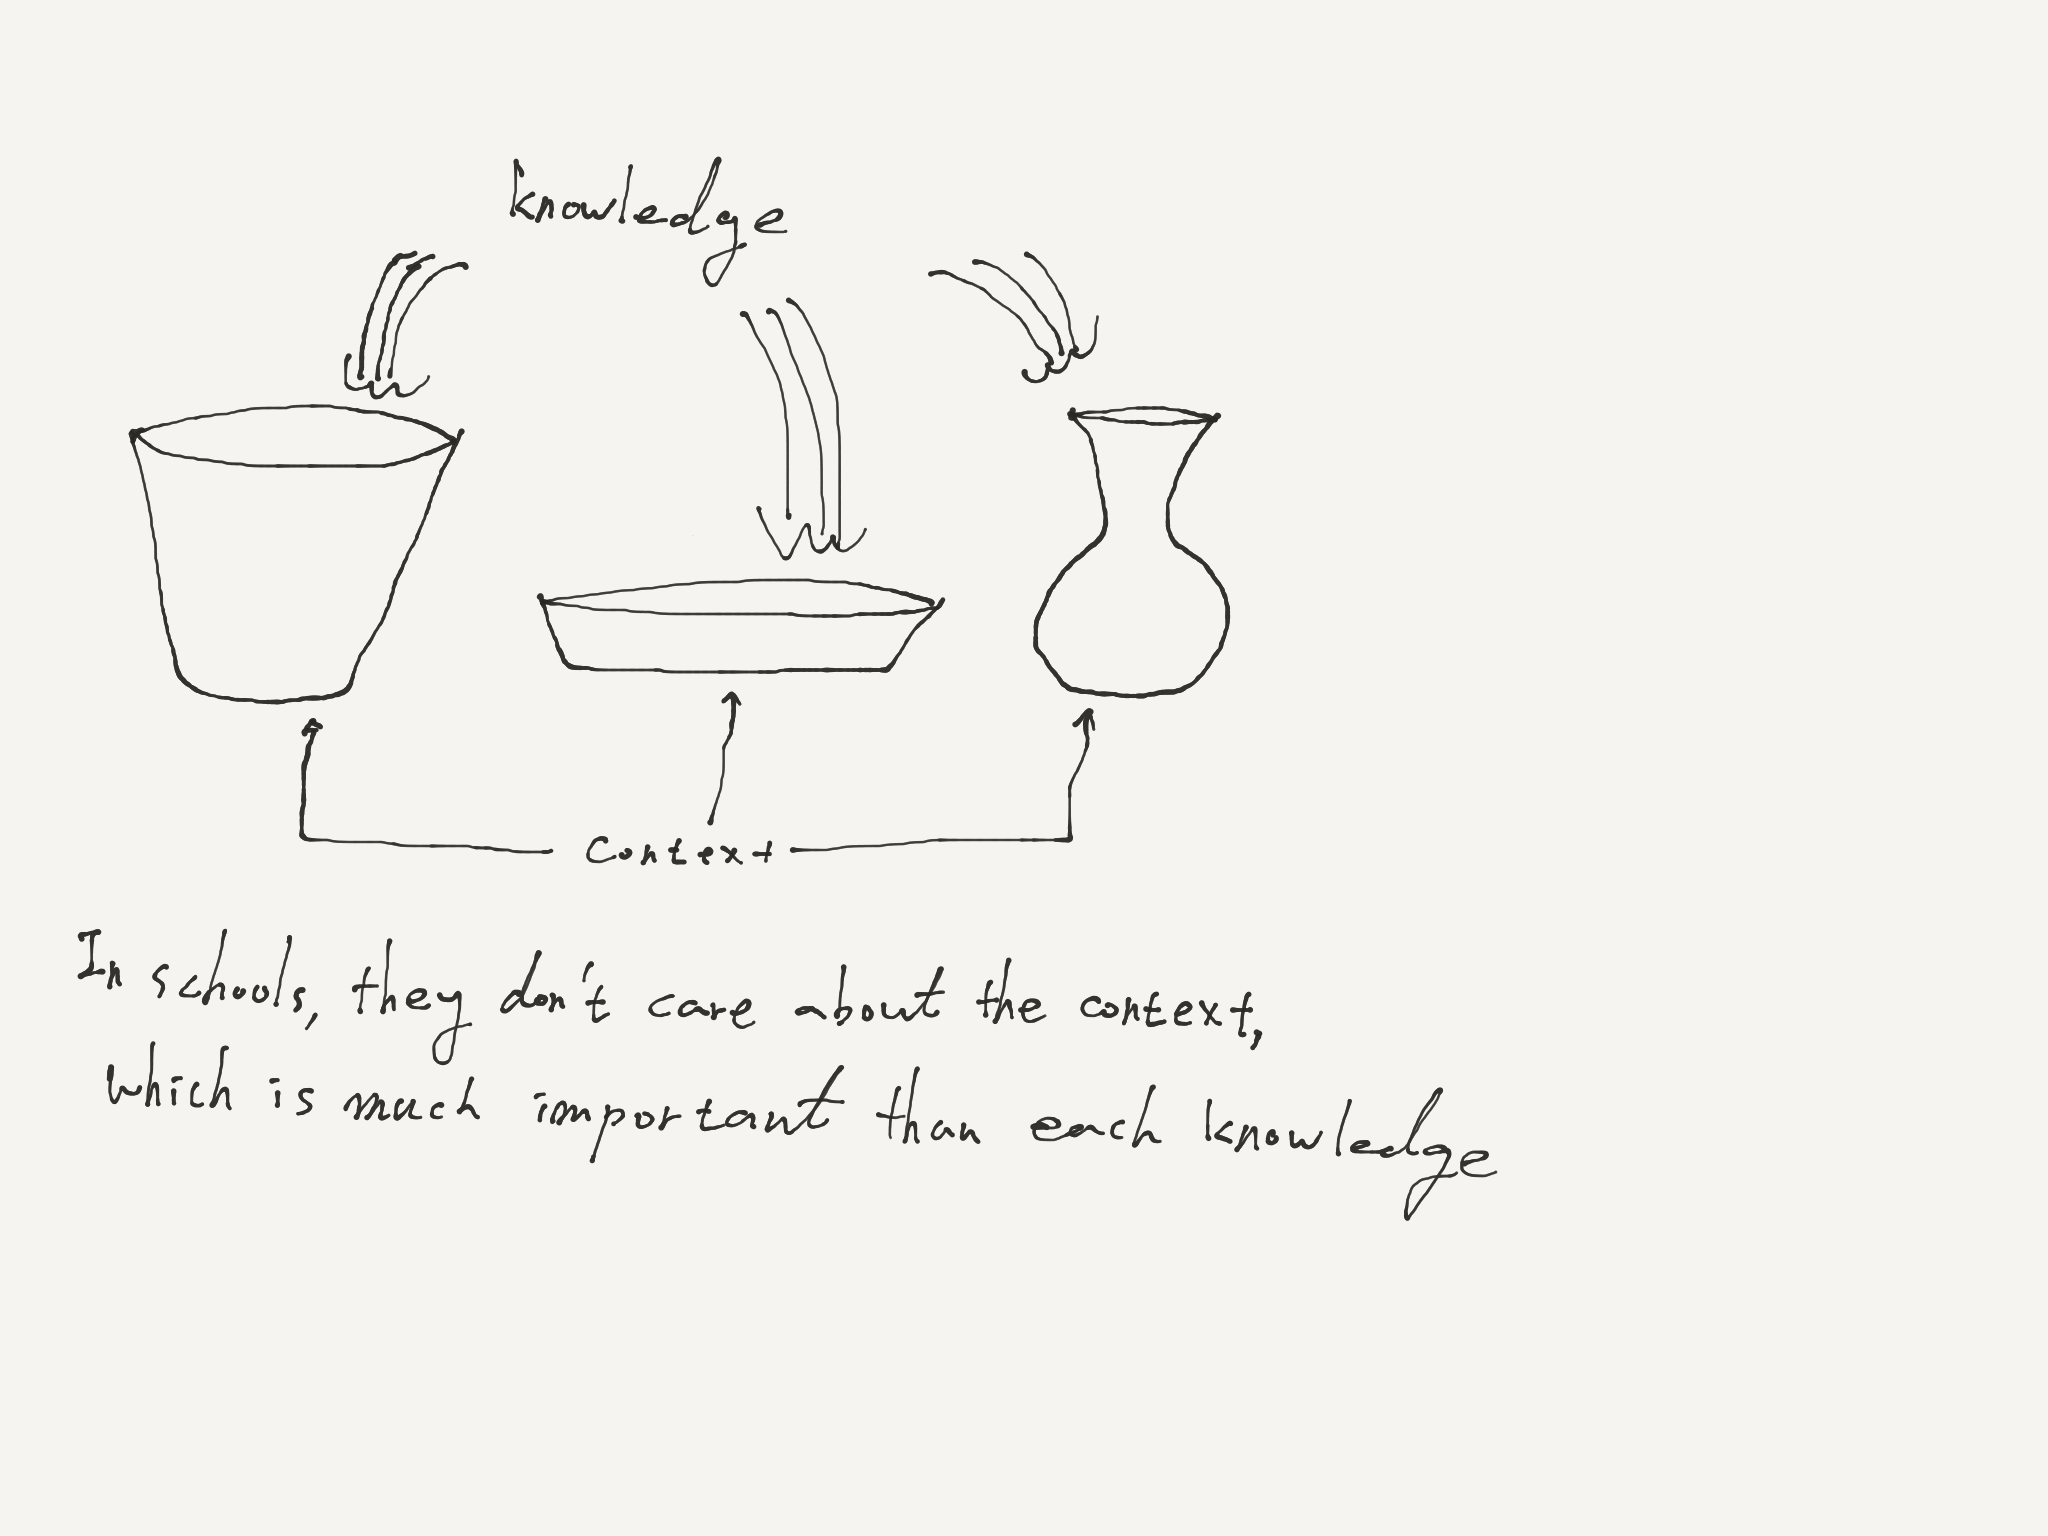 knowledge
Context
In schools, they don't care about the context,
which is much important than each knowledge